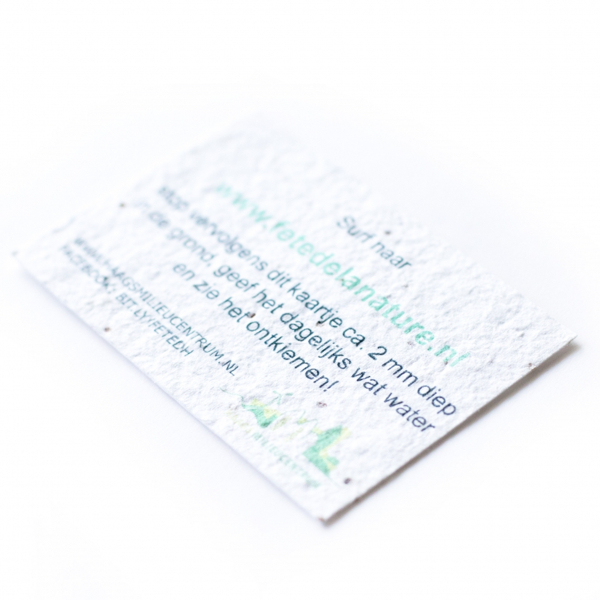 Surf naar
www.fetedelanature.nl
Stop vervolgens dit kaartje ca. 2 mm diep
in de grond, geef het dagelijks wat water
en zie het ontkiemen!
WWW.HAAGSMILIEUCENTRUM.NL
FACEBOOK: BIT.LY/FETEDH